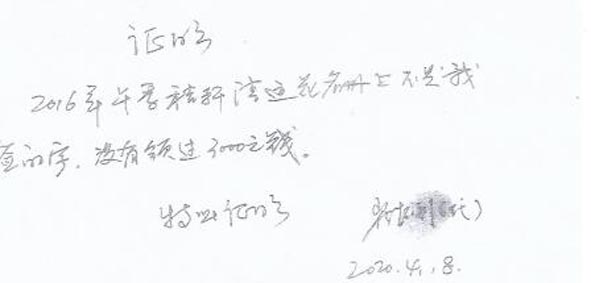 证明
2016年午季秸秆清运花名册上不是我
的字,没有领过3000元钱。
特此证明
2020.4.8.